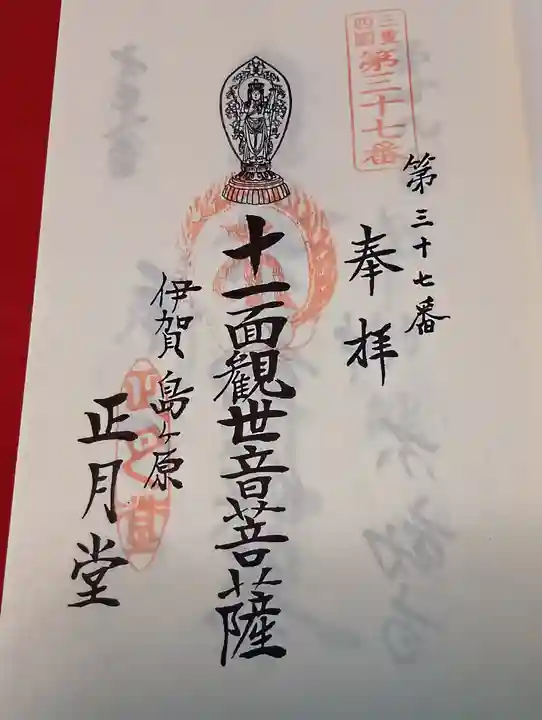 三重
四国
第三十七番
第三十七番
奉拝
十一面観世音菩薩
伊賀島ヶ原
正月堂
正月堂